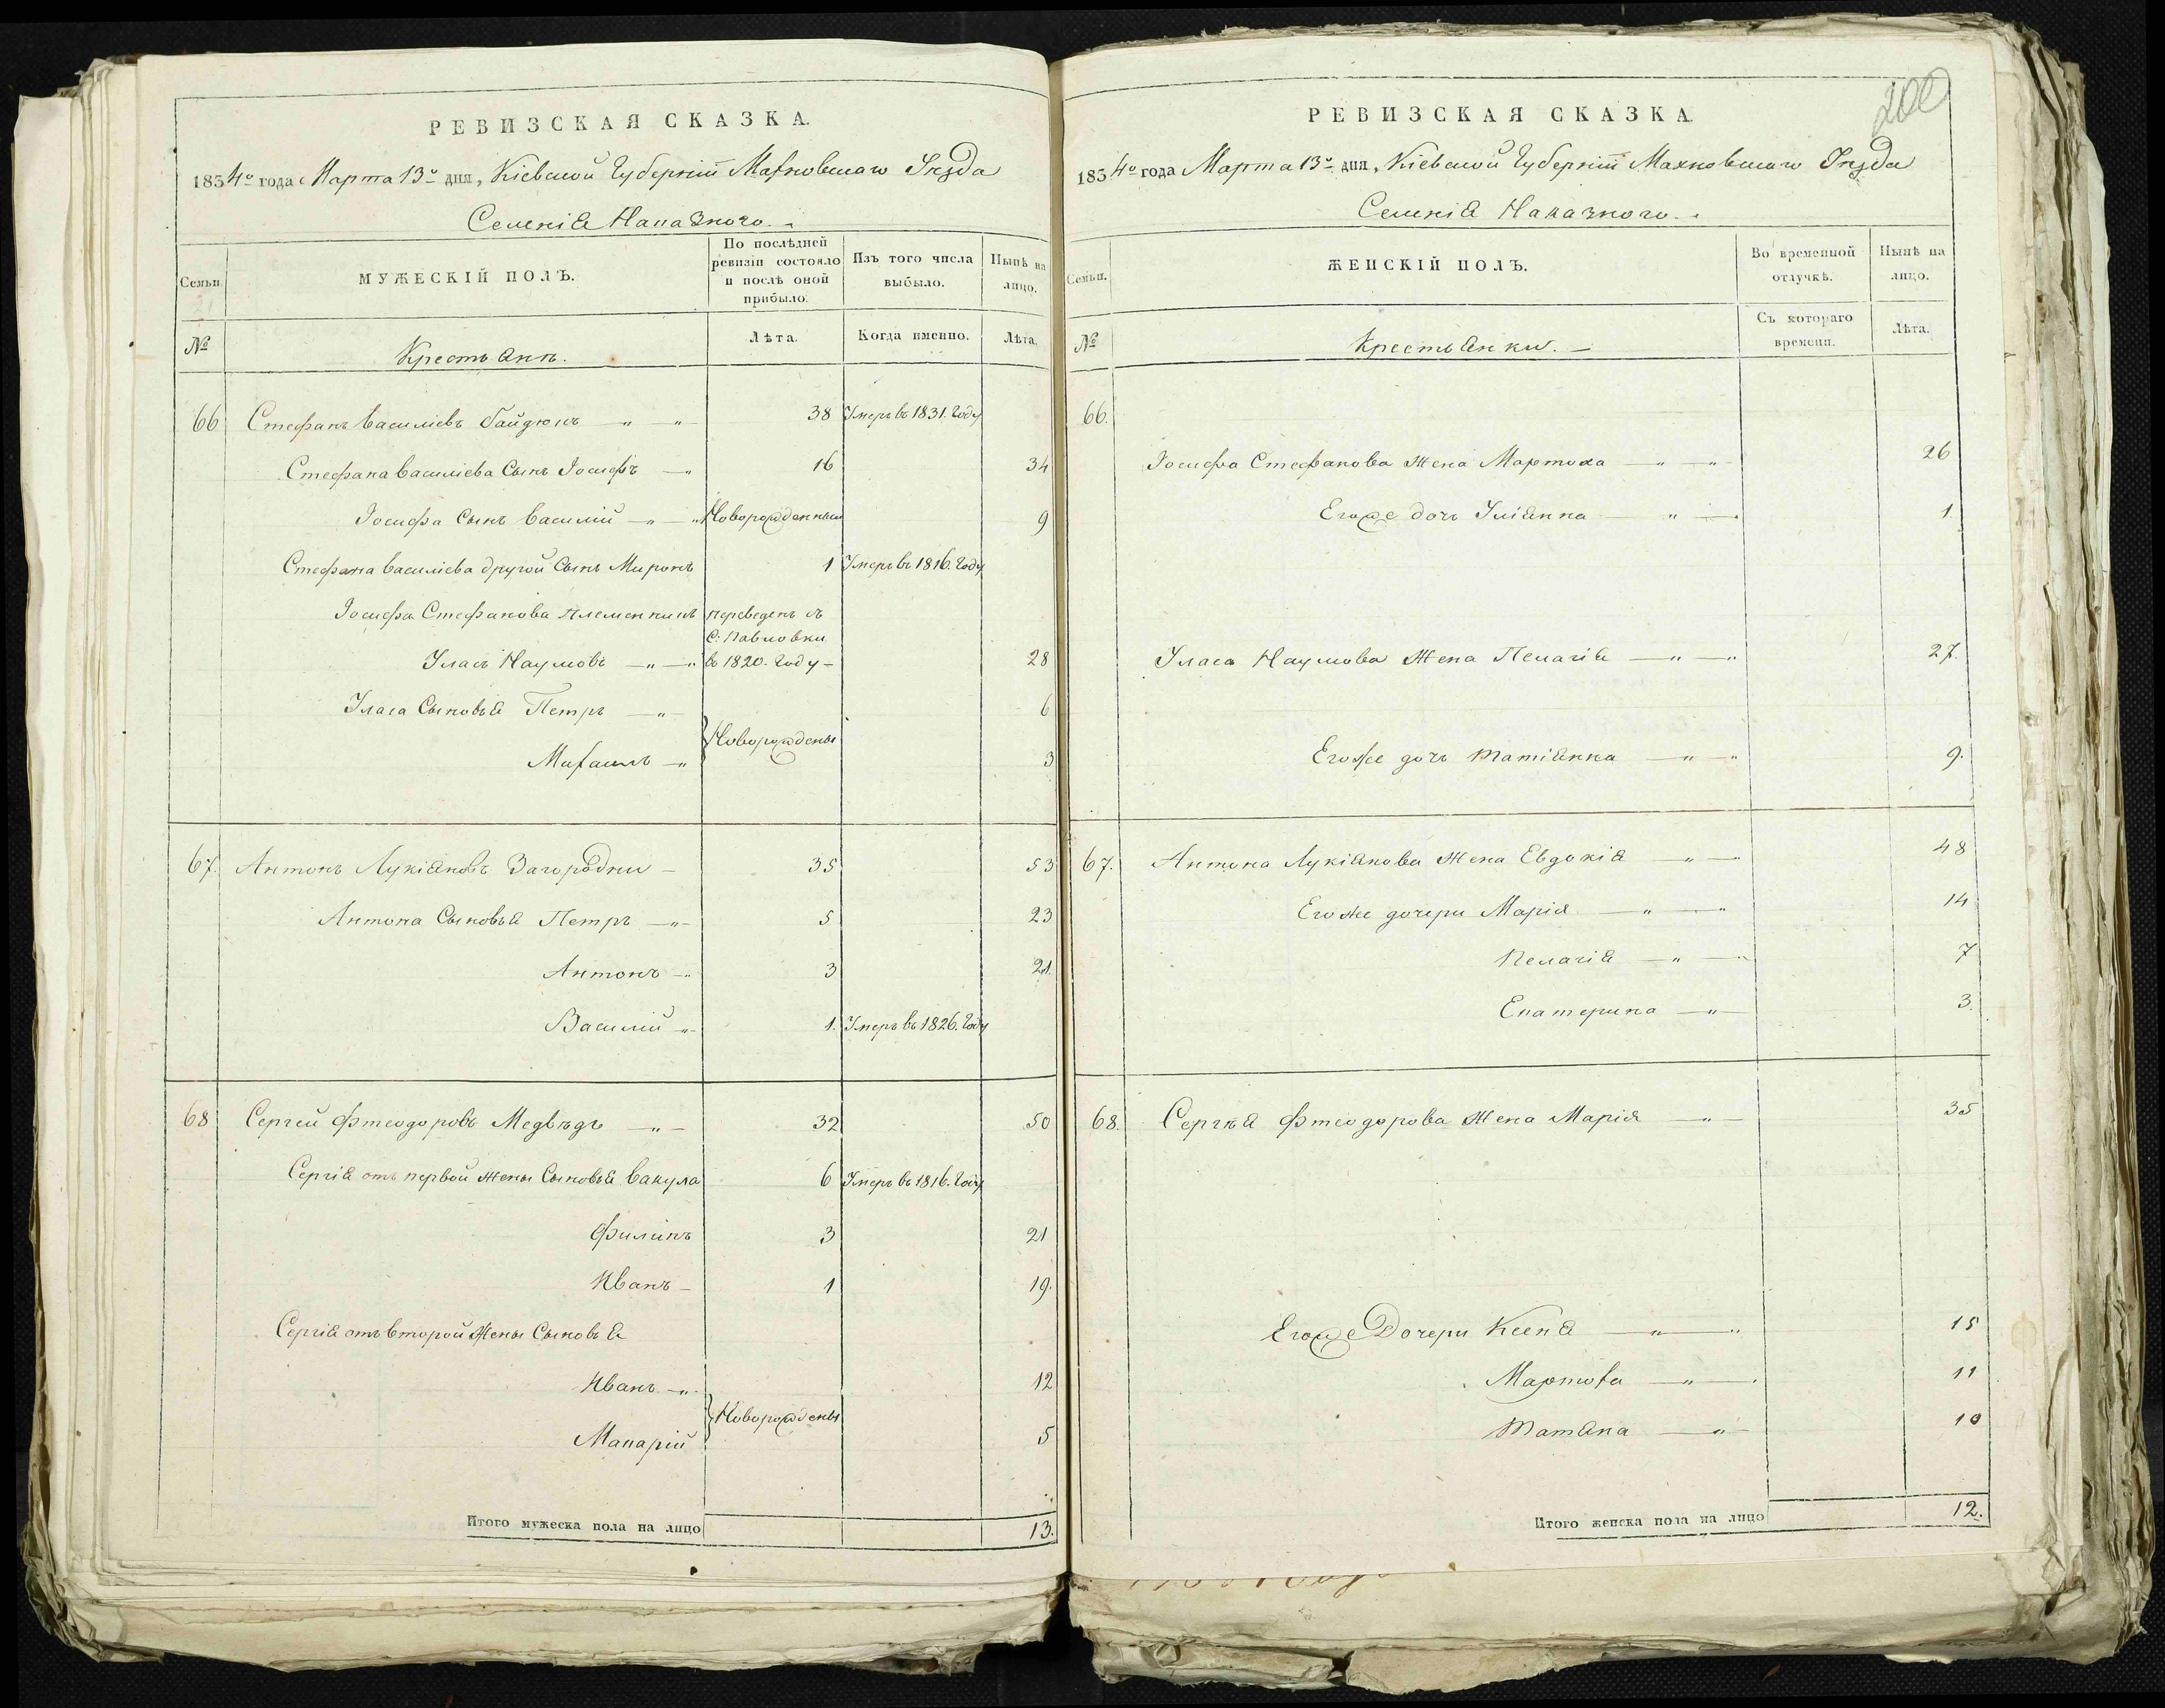 РЕВИЗСКАЯ СКАЗКА.
1834го года Марта 13го дня, Кіевской Губерніи Махновскаго Уѣзда
Селенія Наказного.
Семьи.
МУЖЕСКІЙ ПОЛЪ.
По послѣдней ревизіи состояло и послѣ оной прибыло.
Изъ того числа выбыло.
Нынѣ на лицо.
№
Крестьянъ.
Лѣта.
Когда именно.
Лѣта.
66 Стефанъ Василіевъ Гайдюкъ 38 Умеръ въ 1831. Году
Стефана Василіева Сынъ Іосифъ 16 34
Іосифа Сынъ Василій Новорожденный 9
Стефана Василіева другой Сынъ Миронъ 1 Умеръ въ 1816. Году
Іосифа Стефанова племенникъ переведенъ съ
С: Павловки
Уласъ Наумовъ въ 1820. Году 28
Уласа Сыновья Петръ 6
Новорождены
Михаилъ 3
67. Антонъ Лукіяновъ Загородни 35 53
Антона Сыновья Петръ 5 23
Антонъ 3 21.
Василій 1. Умеръ въ 1826. Году
68 Сергей Фтеодоровъ Медвѣдъ 32 50
Сергія отъ первой жены Сыновья Вакула 6 Умеръ въ 1816. Году
Филипъ 3 21
Иванъ 1 19.
Сергія отъ второй Жены Сыновья
Иванъ 12
Новорождены
Макарій 5
Итого мужеска пола на лицо 13.
200
РЕВИЗСКАЯ СКАЗКА.
1834го года Марта 13го дня, Кіевской Губерніи Махновскаго Уѣзда
Селенія Наказного.
Семьи.
ЖЕНСКІЙ ПОЛЪ.
Во временной отлучкѣ.
Нынѣ на лицо.
№
Крестьянки.
Съ котораго времени.
Лѣта.
66.
Іосифа Стефанова Жена Мартоха 26
Егоже дочъ Уліянна 1
Уласа Наумова Жена Пелагія 27.
Егоже дочъ Татіянна 9.
67. Антона Лукіянова Жена Евдокія 48
Егоже дочери Марія 14
Пелагія 7
Екатерина 3.
68. Сергѣя Фтеодорова Жена Марія 35
Егоже Дочери Ксеня 15
Мартоха 11
Татяна 10
Итого женска пола на лицо 12.